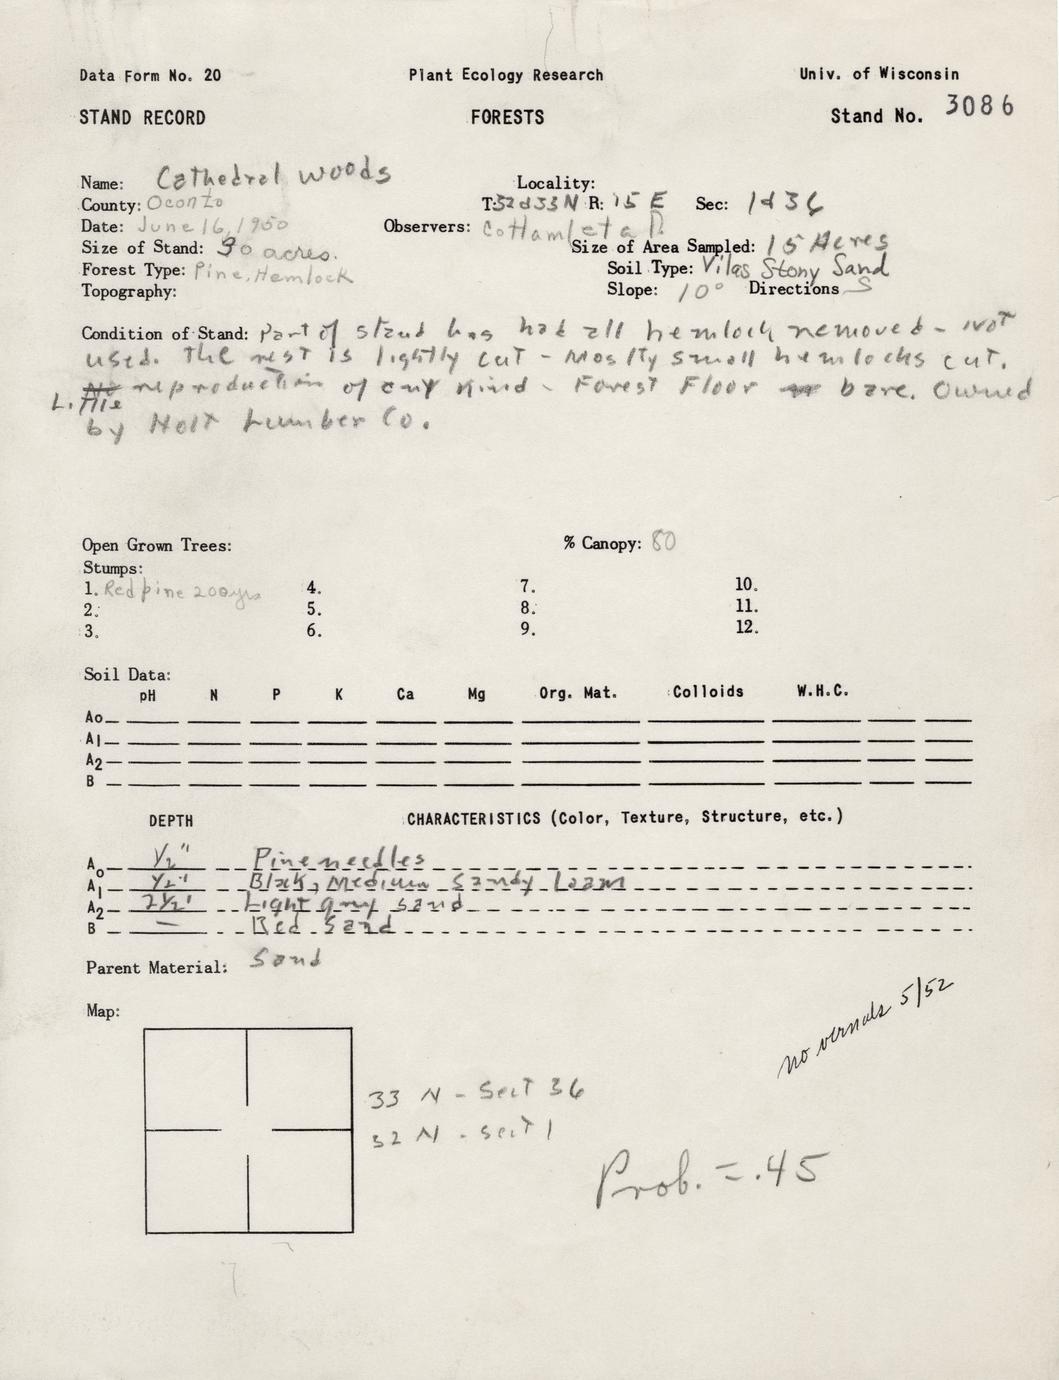 Data Form No. 20 Plant Ecology Research Univ. of Wisconsin
STAND RECORD FORESTS Stand No. 3086
Name: Cathedral Woods Locality:
County: Oconto T: 32 & 33 N R: 15 E Sec: 1 & 36
Date: June 16, 1950 Observers: Cottam et al
Size of Stand: 30 acres. Size of Area Sampled: 15 Acres
Forest Type: Pine, Hemlock Soil Type: Vilas Stony Sand
Topography: Slope: 10° Directions S
Condition of Stand: Part of stand has had all hemlock removed - Not
used. The rest is lightly cut - Mostly small hemlocks cut.
Little reproduction of any kind - Forest Floor bare. Owned
by Holt Lumber Co.
Open Grown Trees: % Canopy: 80
Stumps:
1. Red pine 200 yrs 4. 7. 10.
2. 5. 8. 11.
3. 6. 9. 12.
Soil Data:
pH N P K Ca Mg Org. Mat. Colloids W.H.C.
Ao
A1
A2
B
DEPTH CHARACTERISTICS (Color, Texture, Structure, etc.)
Ao 1/2" Pine needles
A1 1/2" Black, Medium Sandy Loam
A2 2 1/2" Light gray sand
B — Red Sand
Parent Material: Sand
no vernals 5/52
Map:
33 N - Sect 36
32 N - Sect 1
Prob. = .45